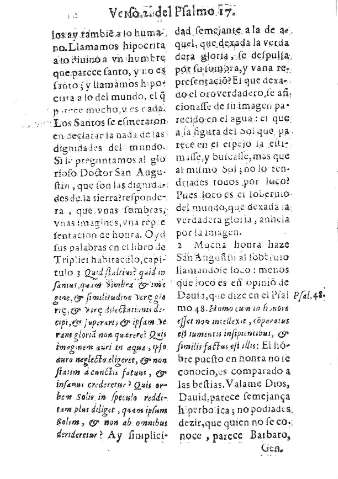 Verso 2. del Psalmo 17.
los ay tambiē a lo huma-
no. Llamamos hipocrita
a lo diuino a vn hombre
que parece santo, y no es
santo; y llamamos hipo-
crita a lo del mundo, el q̃
parece mucho, y es nada.
Los Santos se esmeraron
en declarar la nada de las
dignidades del mundo.
Si le preguntamos al glo-
rioso Doctor San Augu-
stin, que son las dignida-
des de la tierra? responde-
ra, que vnas sombras,
vnas imagines, vna repre
sentacion de honra. Oyd
sus palabras en el libro de
Triplici habitaculo, capi-
tulo 3 Quid stultius? quid in
sanius, quam vmbra & ima
gine, & similitudine veræ glo-
riæ, & veræ delectationis de-
cipi, & superari, & ipsam ve-
ram gloriã non quærere? Quis
imaginem auri in aqua, ipso
auro neglecto eligeret, & non
statim à cunctis fatuus, & in-
sanus crederetur? Quis or-
bem Solis in speculo reddi-
tam plus diliget, quam ipsum
Solem, & non ab omnibus
derideretur? Ay simplici-
dad, semejante a la de a-
quel, que dexada la verda
dera gloria, se despulso
por su sombra, y vana re-
presentaciõ? El que dexa-
do el oro verdadero, se afi-
cionasse de su imagen pa-
recido en el agua: el que
a la figura del Sol que pa-
rece en el espejo la esti-
masse, y buscasse, mas que
al mismo Sol; no lo ten-
driades todos por loco?
Pues loco es el soberuio
del mundo, que dexada la
verdadera gloria, anhela
por la imagen.
2 Mucha honra haze
San Augustin al soberuio
llamandole loco: menos
que loco es en opiniō de
Dauid, que dize en el Psal
Psal. 48.
mo 48. Homo cum in honore
esset non intellexit, cõparatus
est iumentis insipientibus, &
similis factus est illis: El hõ-
bre puesto en honra no se
conocio, es comparado a
las bestias. Valame Dios,
Dauid, parece semejança
hiperbolica; no podiades
dezir, que quien no se co-
noce, parece Barbaro,
Gen.